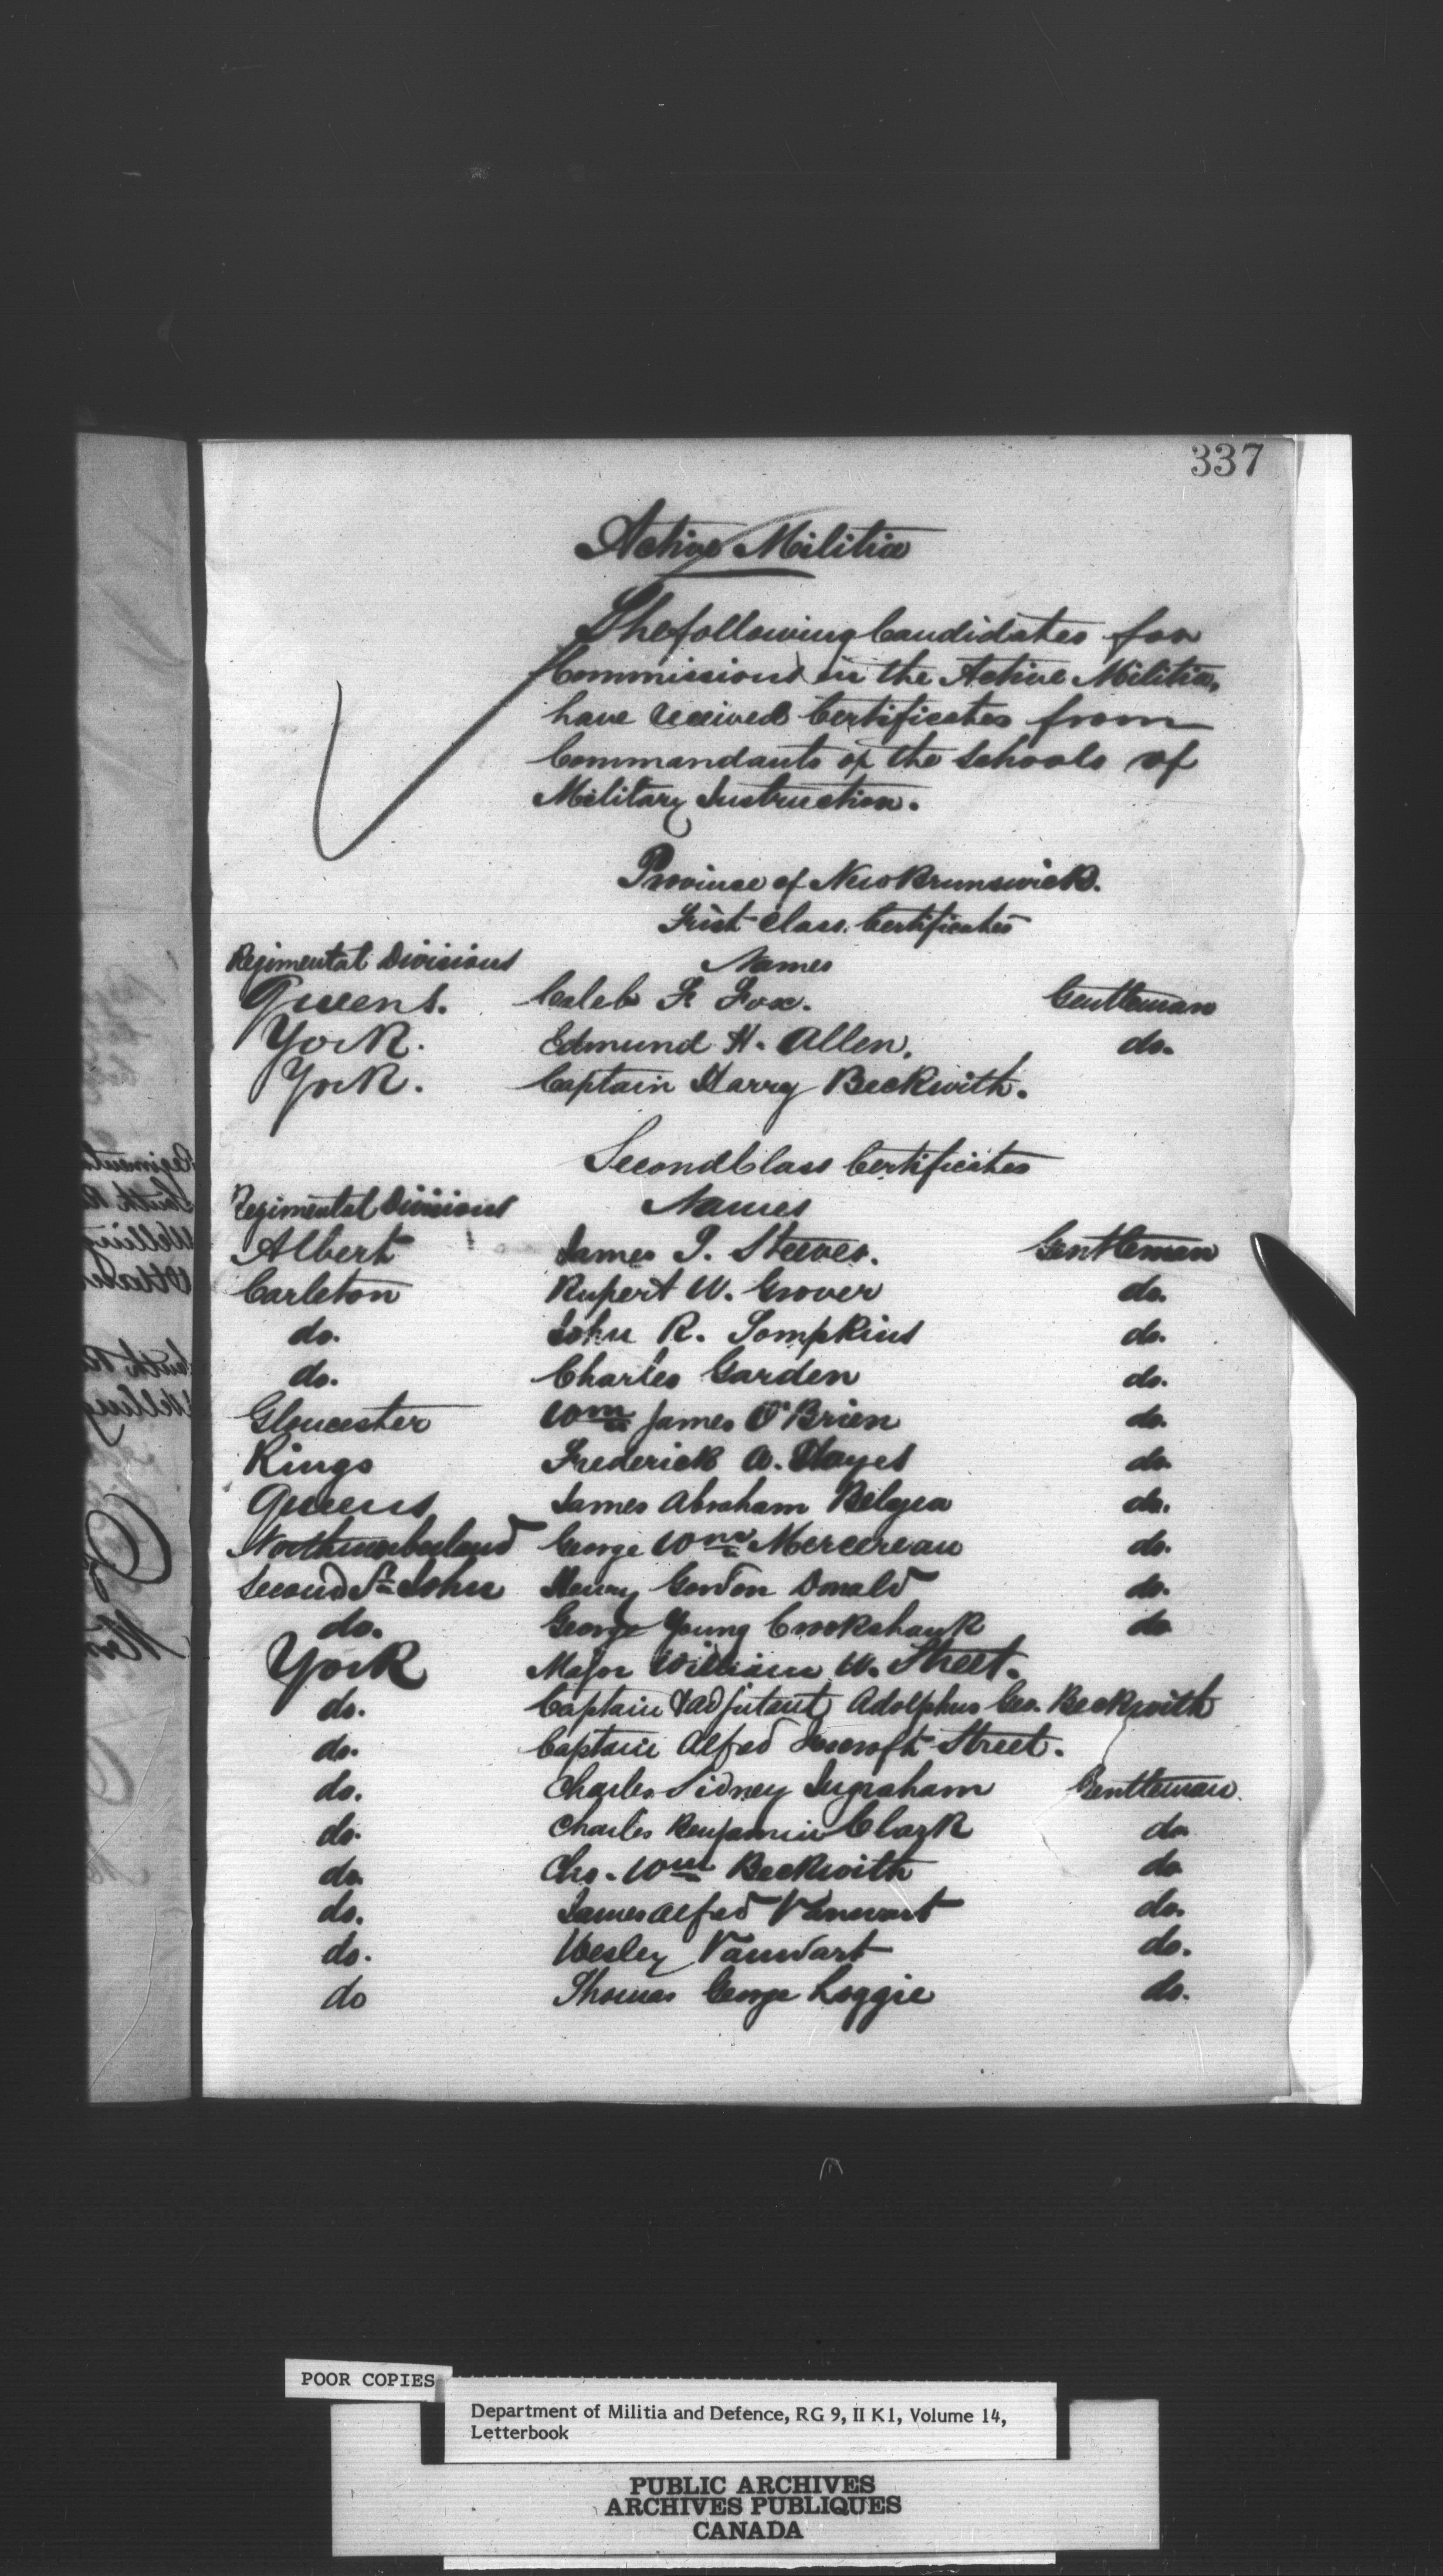 337
Active Militia
The following Candidates for
Commissions in the Active Militia,
have received Certificates from
Commandants of the Schools of
Military Instruction.
Province of New Brunswick.
First Class Certificates
Regimental Divisions Names
Queens. Caleb F Fox. Gentleman
York. Edmund H. Allen. do.
York. Captain Harry Beckwith.
Second Class Certificates
Regimental Divisions Names
Albert James J. Steeves. Gentleman
Carleton Rupert W. Grover do.
do. John R. Tompkins do.
do. Charles Garden do.
Gloucester Wm James O'Brien do.
Kings Frederick A. Hayes do.
Queens James Abraham Belyea do.
Northumberland George Wm Mercereau do.
Second St. John Henry Gordon Donald do.
do. George Young Crookshank do
York Major William W. Street.
do. Captain & Adjutant, Adolphus Geo. Beckwith
do. Captain Alfred Street.
do. Charles Sidney Ingraham Gentleman.
do. Charles Benjamin Clark do
do. Chs. Wm Beckwith do
do. James Alfred Vanwart do.
do. Wesley Vanwart do.
do Thomas George Loggie do.
POOR COPIES
Department of Militia and Defence, RG 9, II K1, Volume 14,
Letterbook
PUBLIC ARCHIVES
ARCHIVES PUBLIQUES
CANADA